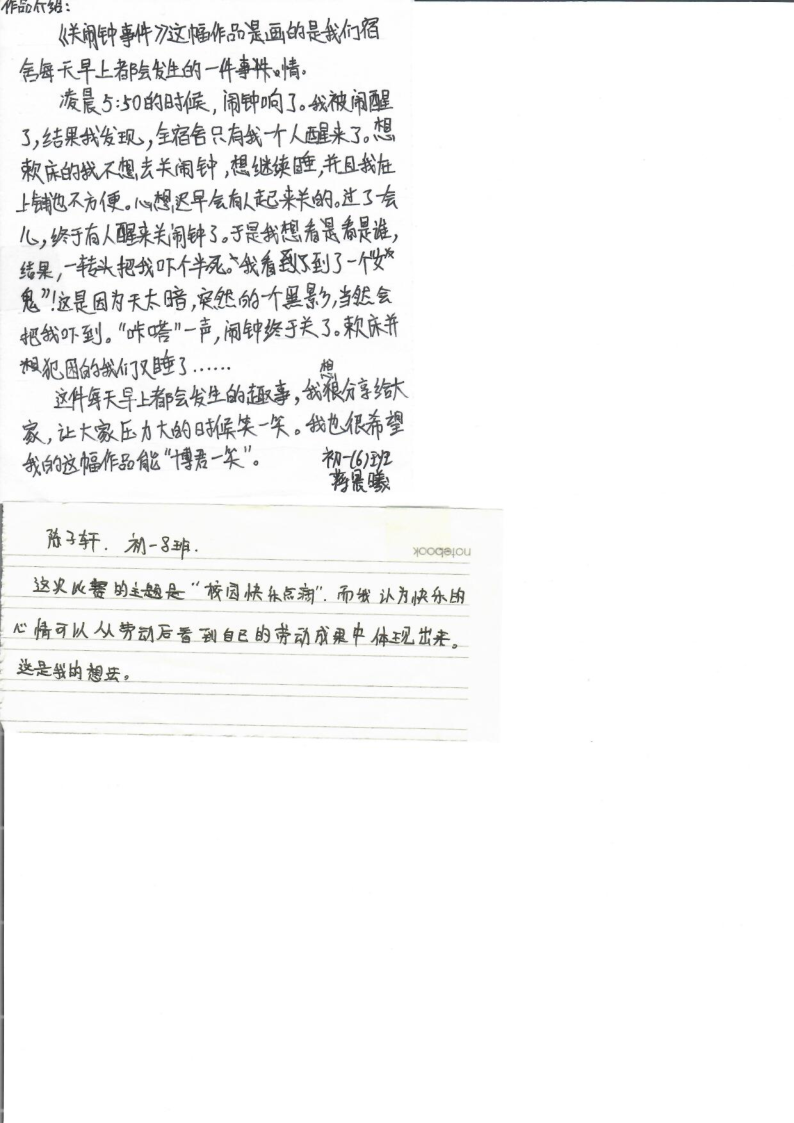 作品介绍：
《关闹钟事件》这幅作品是画的是我们宿
舍每天早上都会发生的一件事情。
凌晨5:50的时候，闹钟响了。我被闹醒
了，结果我发现，全宿舍只有我一个人醒来了。想
赖床的我不想去关闹钟，想继续睡，并且我在
上铺也不方便。心想迟早会有人起来关的。过了一会
儿，终于有人醒来关闹钟了。于是我想看是看是谁，
结果，一转头把我吓个半死。我看到了到了一个“女
鬼”！这是因为天太暗，突然的一个黑影，当然会
把我吓到。“咔嗒”一声，闹钟终于关了。赖床并
犯困的我们又睡了……
这件每天早上都会发生的趣事，我很想分享给大
家，让大家压力大的时候笑一笑。我也很希望
我的这幅作品能“博君一笑”。
初一(6)班
蒋晨曦
陈子轩． 初一8班．
notebook
这次比赛的主题是“校园快乐点滴”．而我认为快乐的
心情可以从劳动后看到自己的劳动成果中体现出来。
这是我的想法。